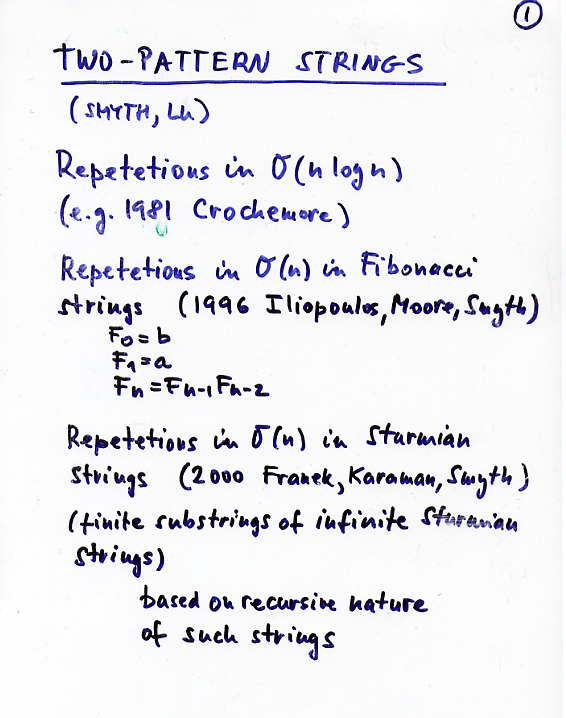 1
TWO-PATTERN STRINGS
(SMYTH, LU)
Repetetions in O(n log n)
(e.g. 1981 Crochemore)
Repetetions in O(n) in Fibonacci
strings (1996 Iliopoulos, Moore, Smyth)
F₀ = b
F₁ = a
Fn = Fn-1 Fn-2
Repetetions in O(n) in Sturmian
strings (2000 Franek, Karaman, Smyth)
(finite substrings of infinite Sturmian
strings)
based on recursive nature
of such strings